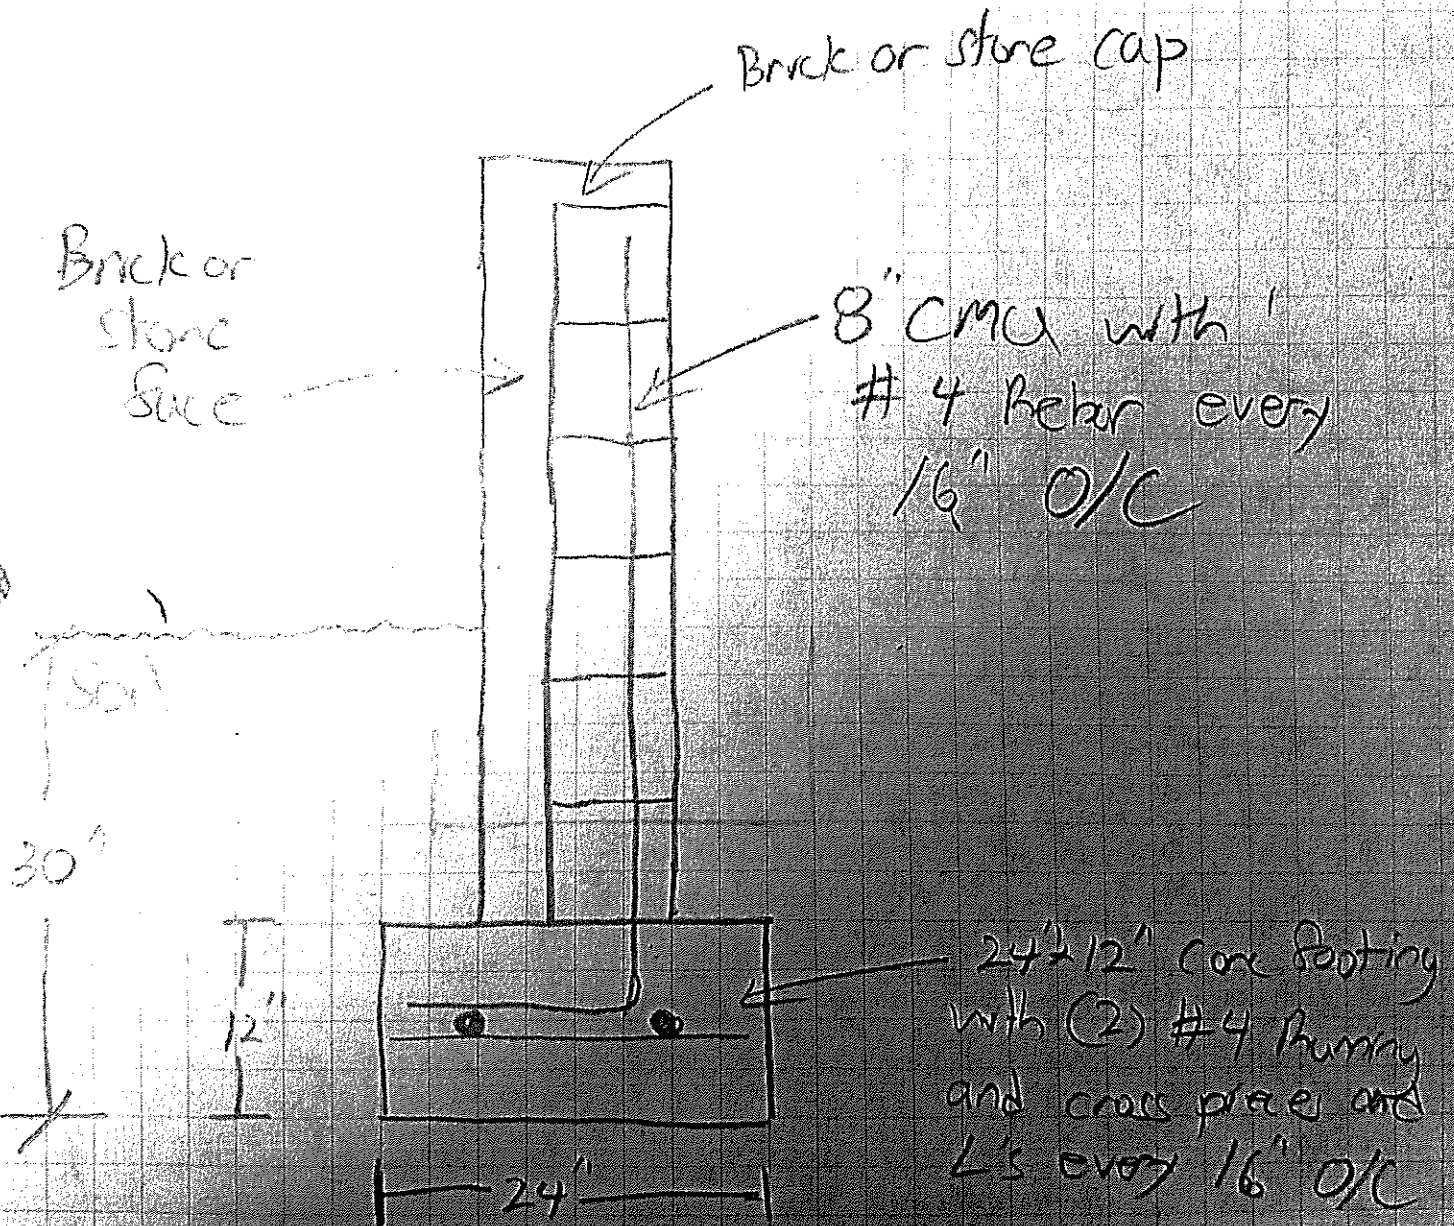 Brick or stone cap
Brick or
stone
face
8" CMU with
# 4 Rebar every
16" O/C
Soil
30"
12"
24"x12" Conc footing
with (2) #4 Running
and cross pieces and
L's every 16" O/C
24"